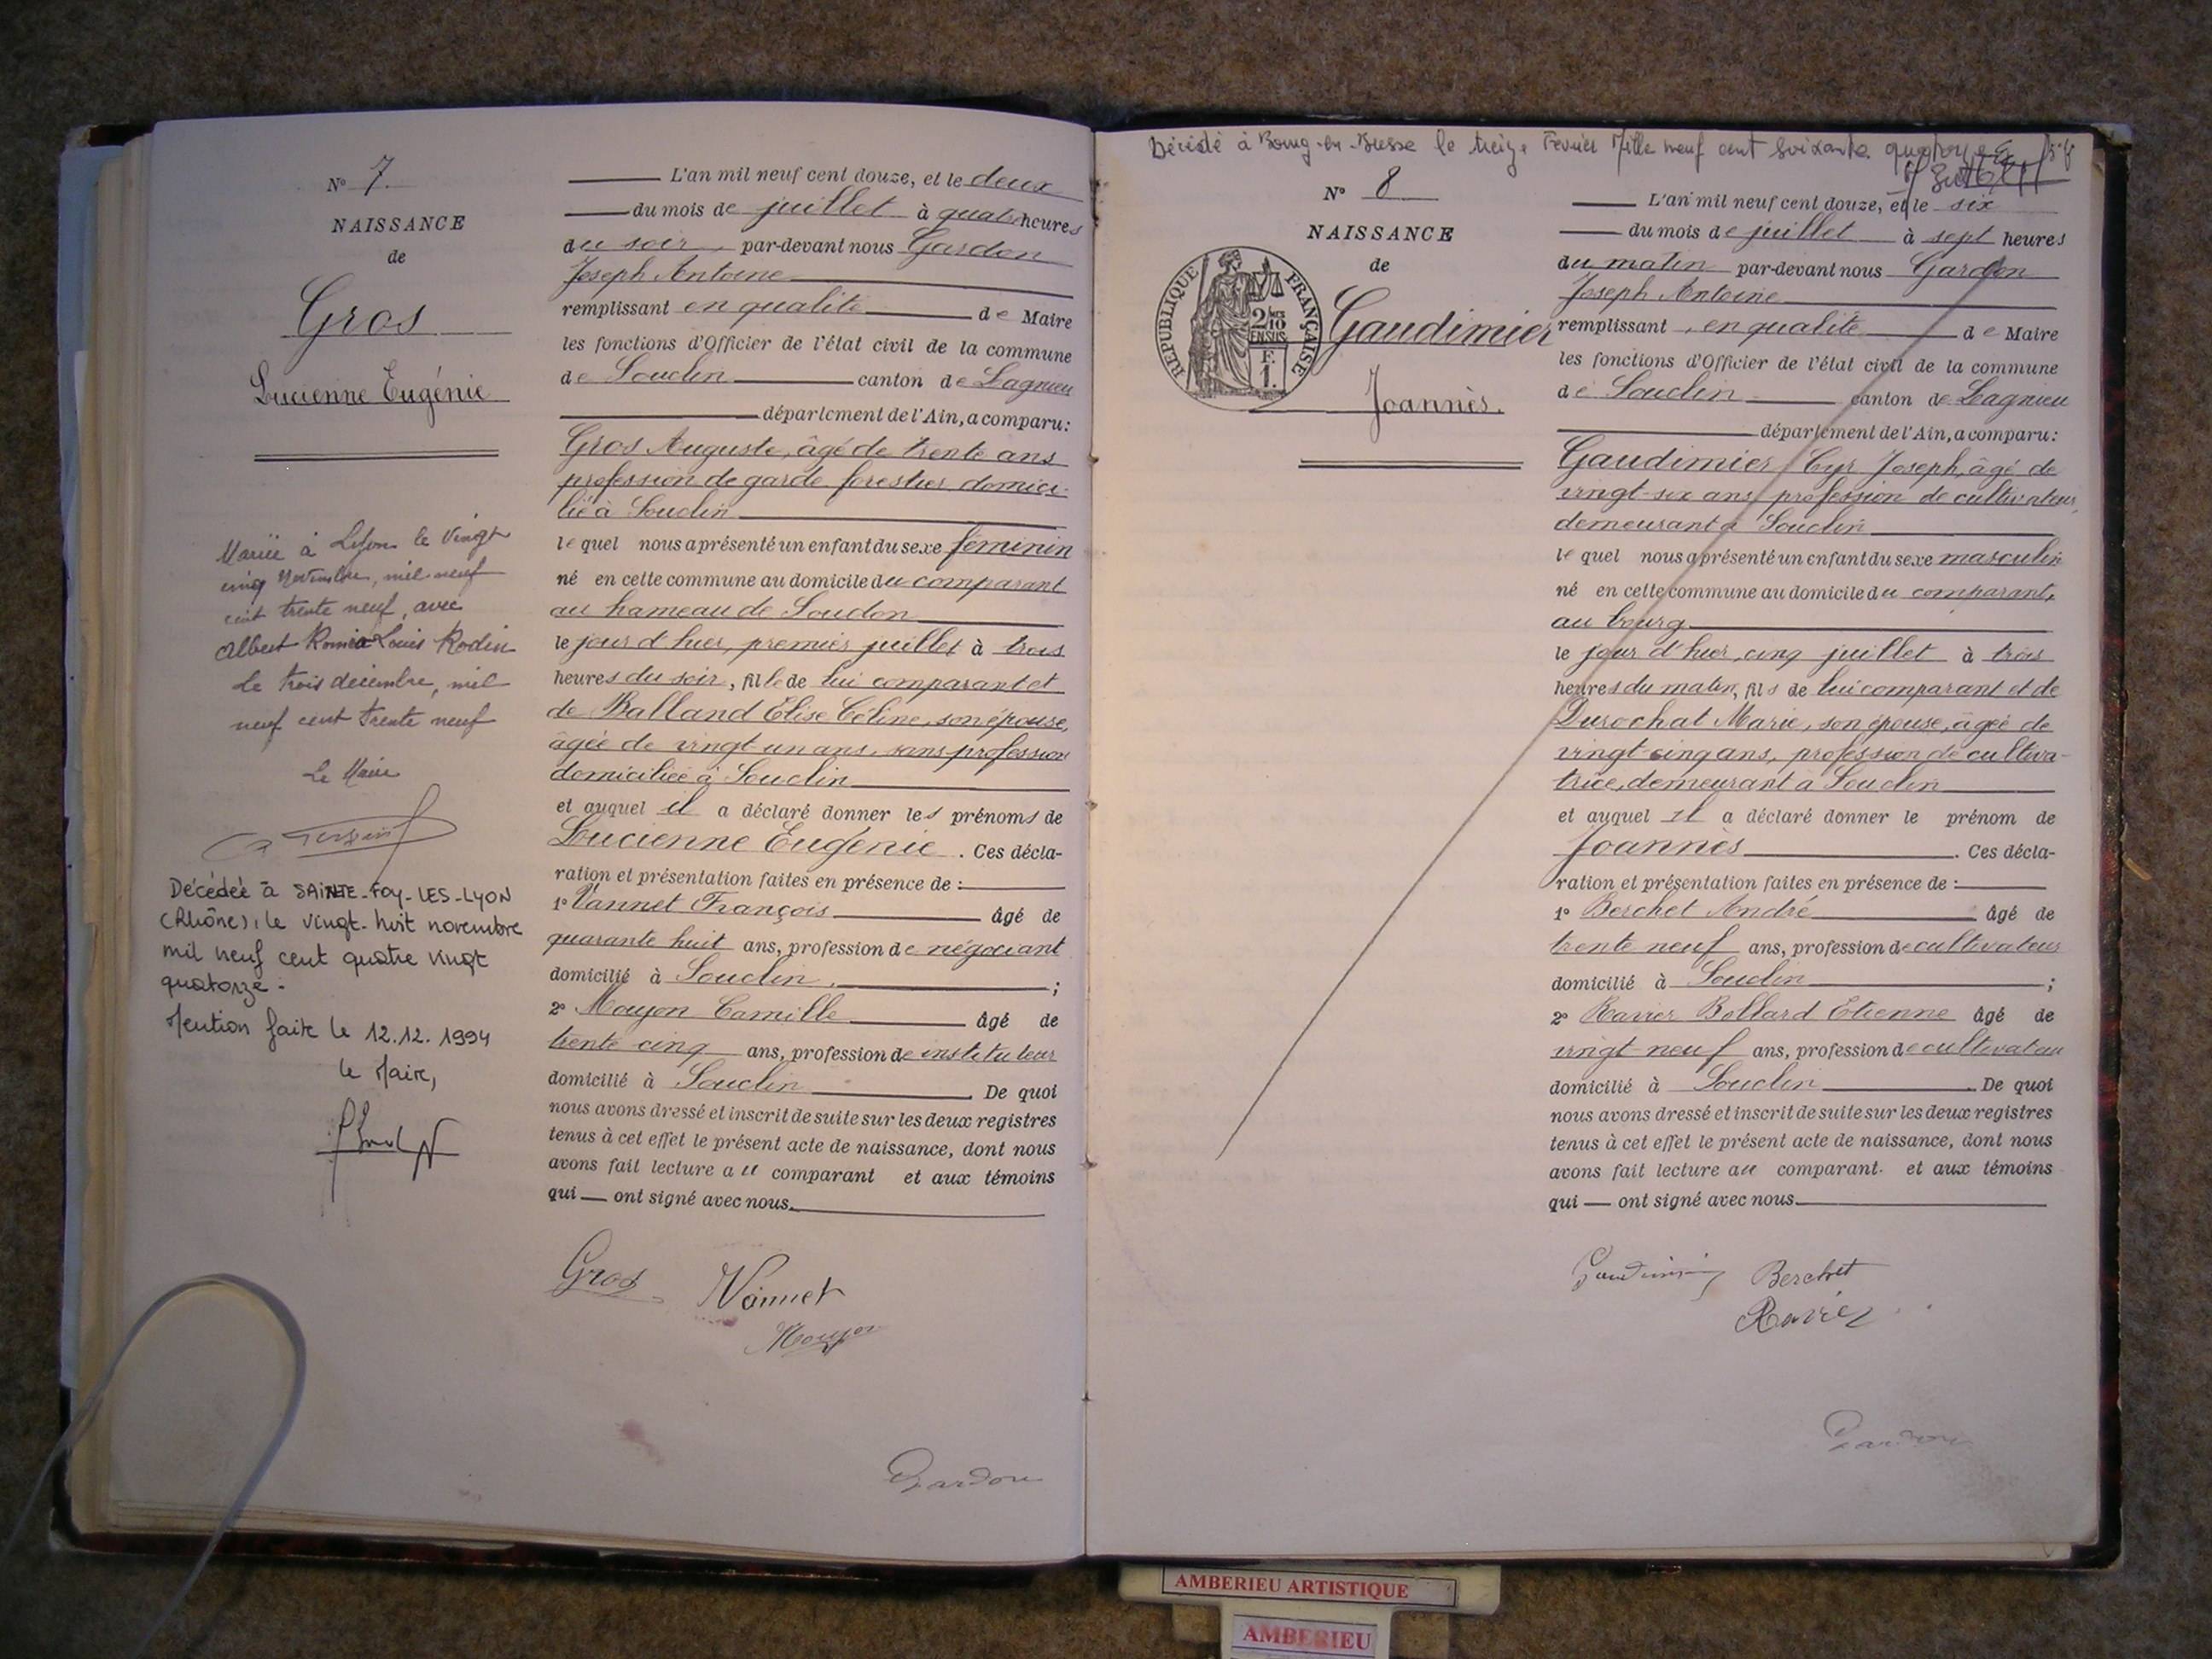 N° 7.
NAISSANCE
de
Gros
Lucienne Eugénie
Mariée à Lyon le vingt
cinq Novembre, mil neuf
cent trente neuf, avec
Albert Louis Rodin
Le trois décembre, mil
neuf cent trente neuf
Le Maire
Décédée à SAINTE-FOY-LES-LYON
(Rhône), le vingt-huit novembre
mil neuf cent quatre vingt
quatorze -
Mention faite le 12.12.1994
le Maire,
L'an mil neuf cent douze, et le deux
du mois de juillet à quatre heures
du soir, par-devant nous Gardon
Joseph Antoine
remplissant en qualité de Maire
les fonctions d'Officier de l'état civil de la commune
de Souclin canton de Lagnieu
département de l'Ain, a comparu:
Gros Auguste, âgé de trente ans
profession de garde forestier domici-
lié à Souclin
lequel nous a présenté un enfant du sexe féminin
né en cette commune au domicile du comparant
au hameau de Soudon
le jour d'hier, premier juillet à trois
heures du soir, fille de lui comparant et
de Balland Elise Céline, son épouse,
âgée de vingt un ans, sans profession
domiciliée à Souclin
et auquel il a déclaré donner les prénoms de
Lucienne Eugénie. Ces décla-
ration et présentation faites en présence de :
1° Vannet François âgé de
quarante huit ans, profession de négociant
domicilié à Souclin, ;
2° Mouyon Camille âgé de
trente cinq ans, profession de instituteur
domicilié à Souclin. De quoi
nous avons dressé et inscrit de suite sur les deux registres
tenus à cet effet le présent acte de naissance, dont nous
avons fait lecture au comparant et aux témoins
qui — ont signé avec nous.
Gros Vannet
Mouyon
Gardon
Décédé à Bourg-en-Bresse le treize Février Mille neuf cent soixante quatorze
N° 8
NAISSANCE
de
RÉPUBLIQUE FRANÇAISE
2/10
EN SUS
F.
1.
Gaudimier
Joannès.
L'an mil neuf cent douze, et le six
du mois de juillet à sept heures
du matin par-devant nous Gardon
Joseph Antoine
remplissant, en qualité de Maire
les fonctions d'Officier de l'état civil de la commune
de Souclin canton de Lagnieu
département de l'Ain, a comparu:
Gaudimier Cyr Joseph, âgé de
vingt-six ans, profession de cultivateur,
demeurant à Souclin
lequel nous a présenté un enfant du sexe masculin
né en cette commune au domicile du comparant,
au bourg
le jour d'hier, cinq juillet à trois
heures du matin, fils de lui comparant et de
Durochat Marie, son épouse, âgée de
vingt-cinq ans, profession de cultiva-
trice, demeurant à Souclin
et auquel il a déclaré donner le prénom de
Joannès. Ces décla-
ration et présentation faites en présence de :
1° Berchet André âgé de
trente neuf ans, profession de cultivateur
domicilié à Souclin ;
2° Ravier Bollard Etienne âgé de
vingt-neuf ans, profession de cultivateur
domicilié à Souclin. De quoi
nous avons dressé et inscrit de suite sur les deux registres
tenus à cet effet le présent acte de naissance, dont nous
avons fait lecture au comparant. et aux témoins
qui — ont signé avec nous
Gaudimier Berchet
Ravier
Gardon
AMBERIEU ARTISTIQUE
AMBERIEU